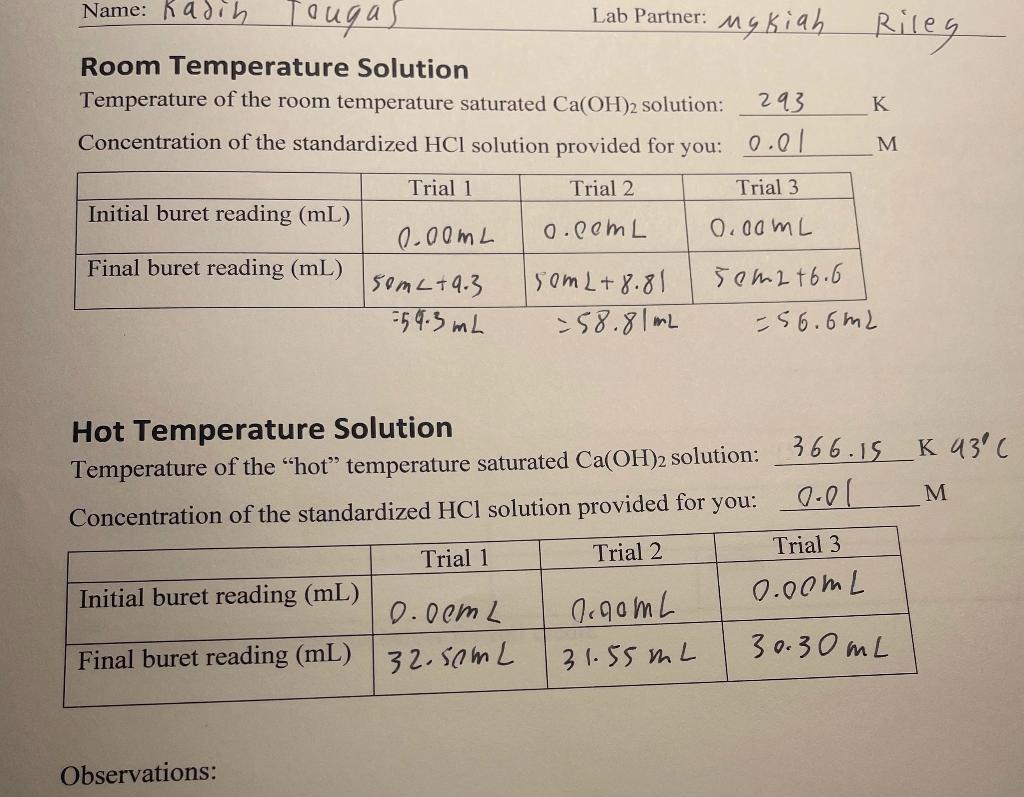 Name: Kadin Tougas Lab Partner: Mykiah Riley
Room Temperature Solution
Temperature of the room temperature saturated Ca(OH)2 solution: 293 K
Concentration of the standardized HCl solution provided for you: 0.01 M
Trial 1 Trial 2 Trial 3
Initial buret reading (mL) 0.00mL 0.00mL 0.00mL
Final buret reading (mL) 50mL+9.3 50mL+8.81 50mL+6.6
=59.3mL =58.81mL =56.6mL
Hot Temperature Solution
Temperature of the “hot” temperature saturated Ca(OH)2 solution: 366.15 K 93°C
Concentration of the standardized HCl solution provided for you: 0.01 M
Trial 1 Trial 2 Trial 3
Initial buret reading (mL) 0.00mL 0.00mL 0.00mL
Final buret reading (mL) 32.50mL 31.55mL 30.30mL
Observations: